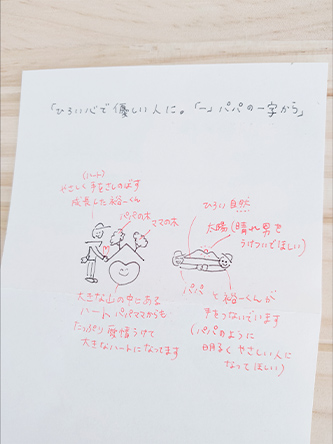 「ひろい心で優しい人に。「一」パパの一字から」
(ハート)
やさしく手をさしのばす
成長した裕一くん
パパの木
ママの木
大きな山の中にある
ハート パパママからも
たっぷり愛情うけて
大きなハートになってます
ひろい自然
太陽(晴れ男を
うけついでほしい)
パパと裕一くんが
手をつないでいます
(パパのように
明るくやさしい人に
なってほしい)